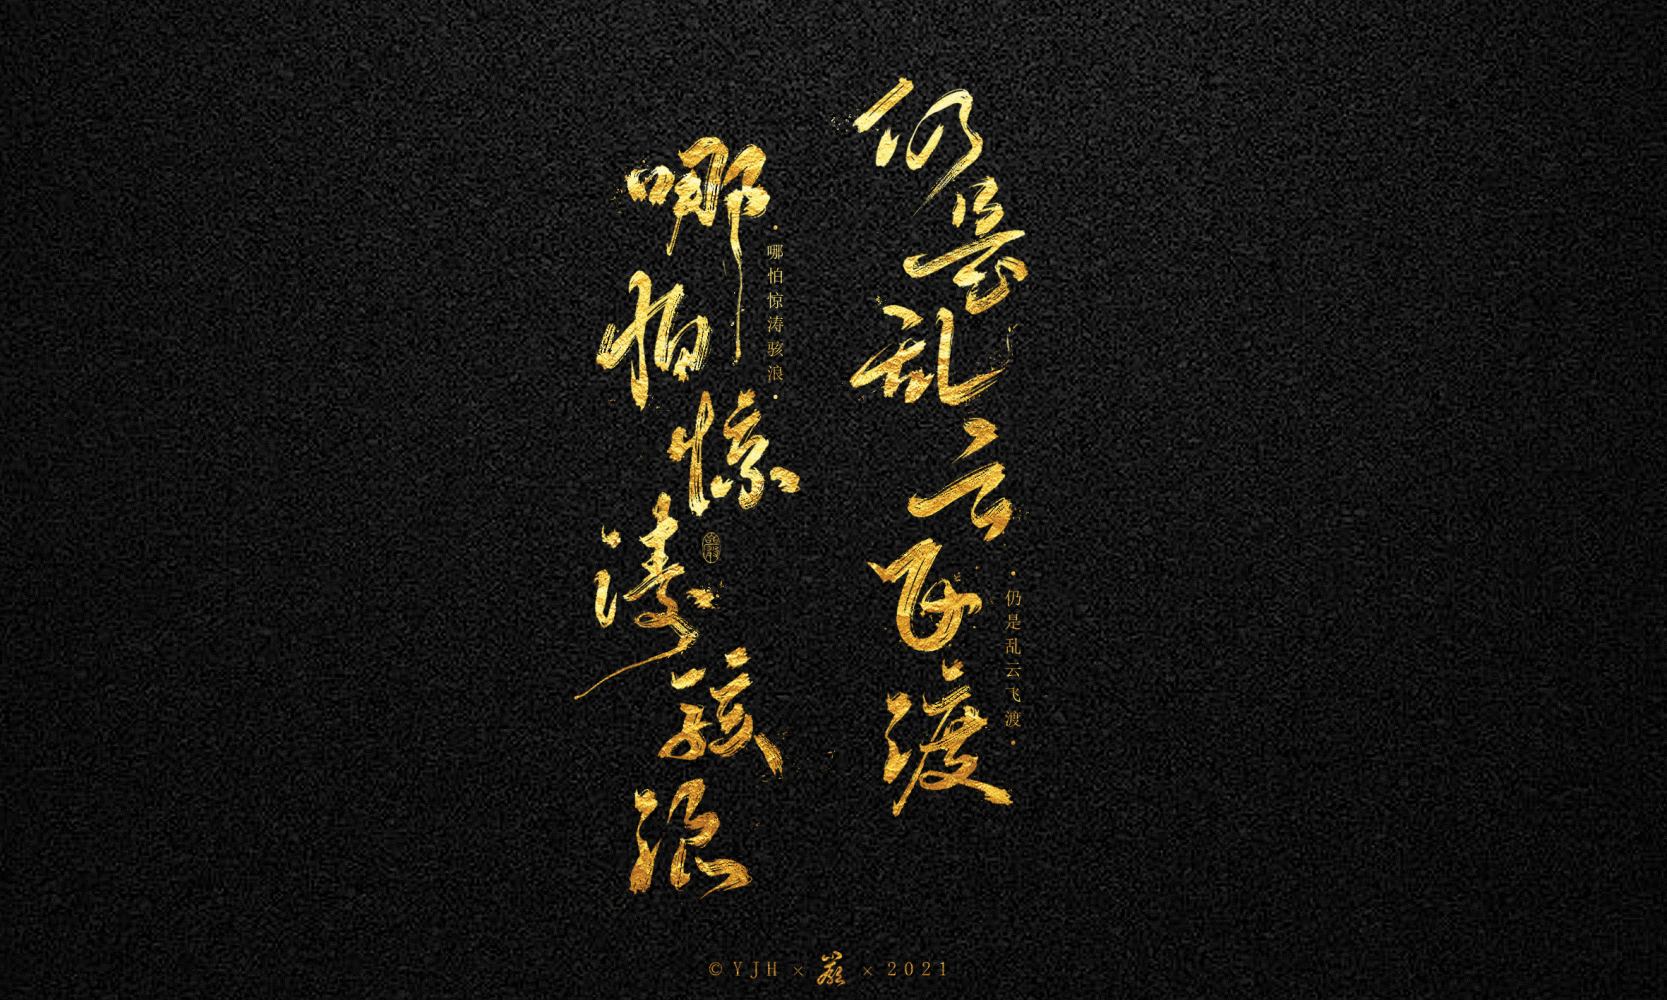 仍是乱云飞渡
·仍是乱云飞渡·
哪怕惊涛骇浪
·哪怕惊涛骇浪·
©YJH × × 2021